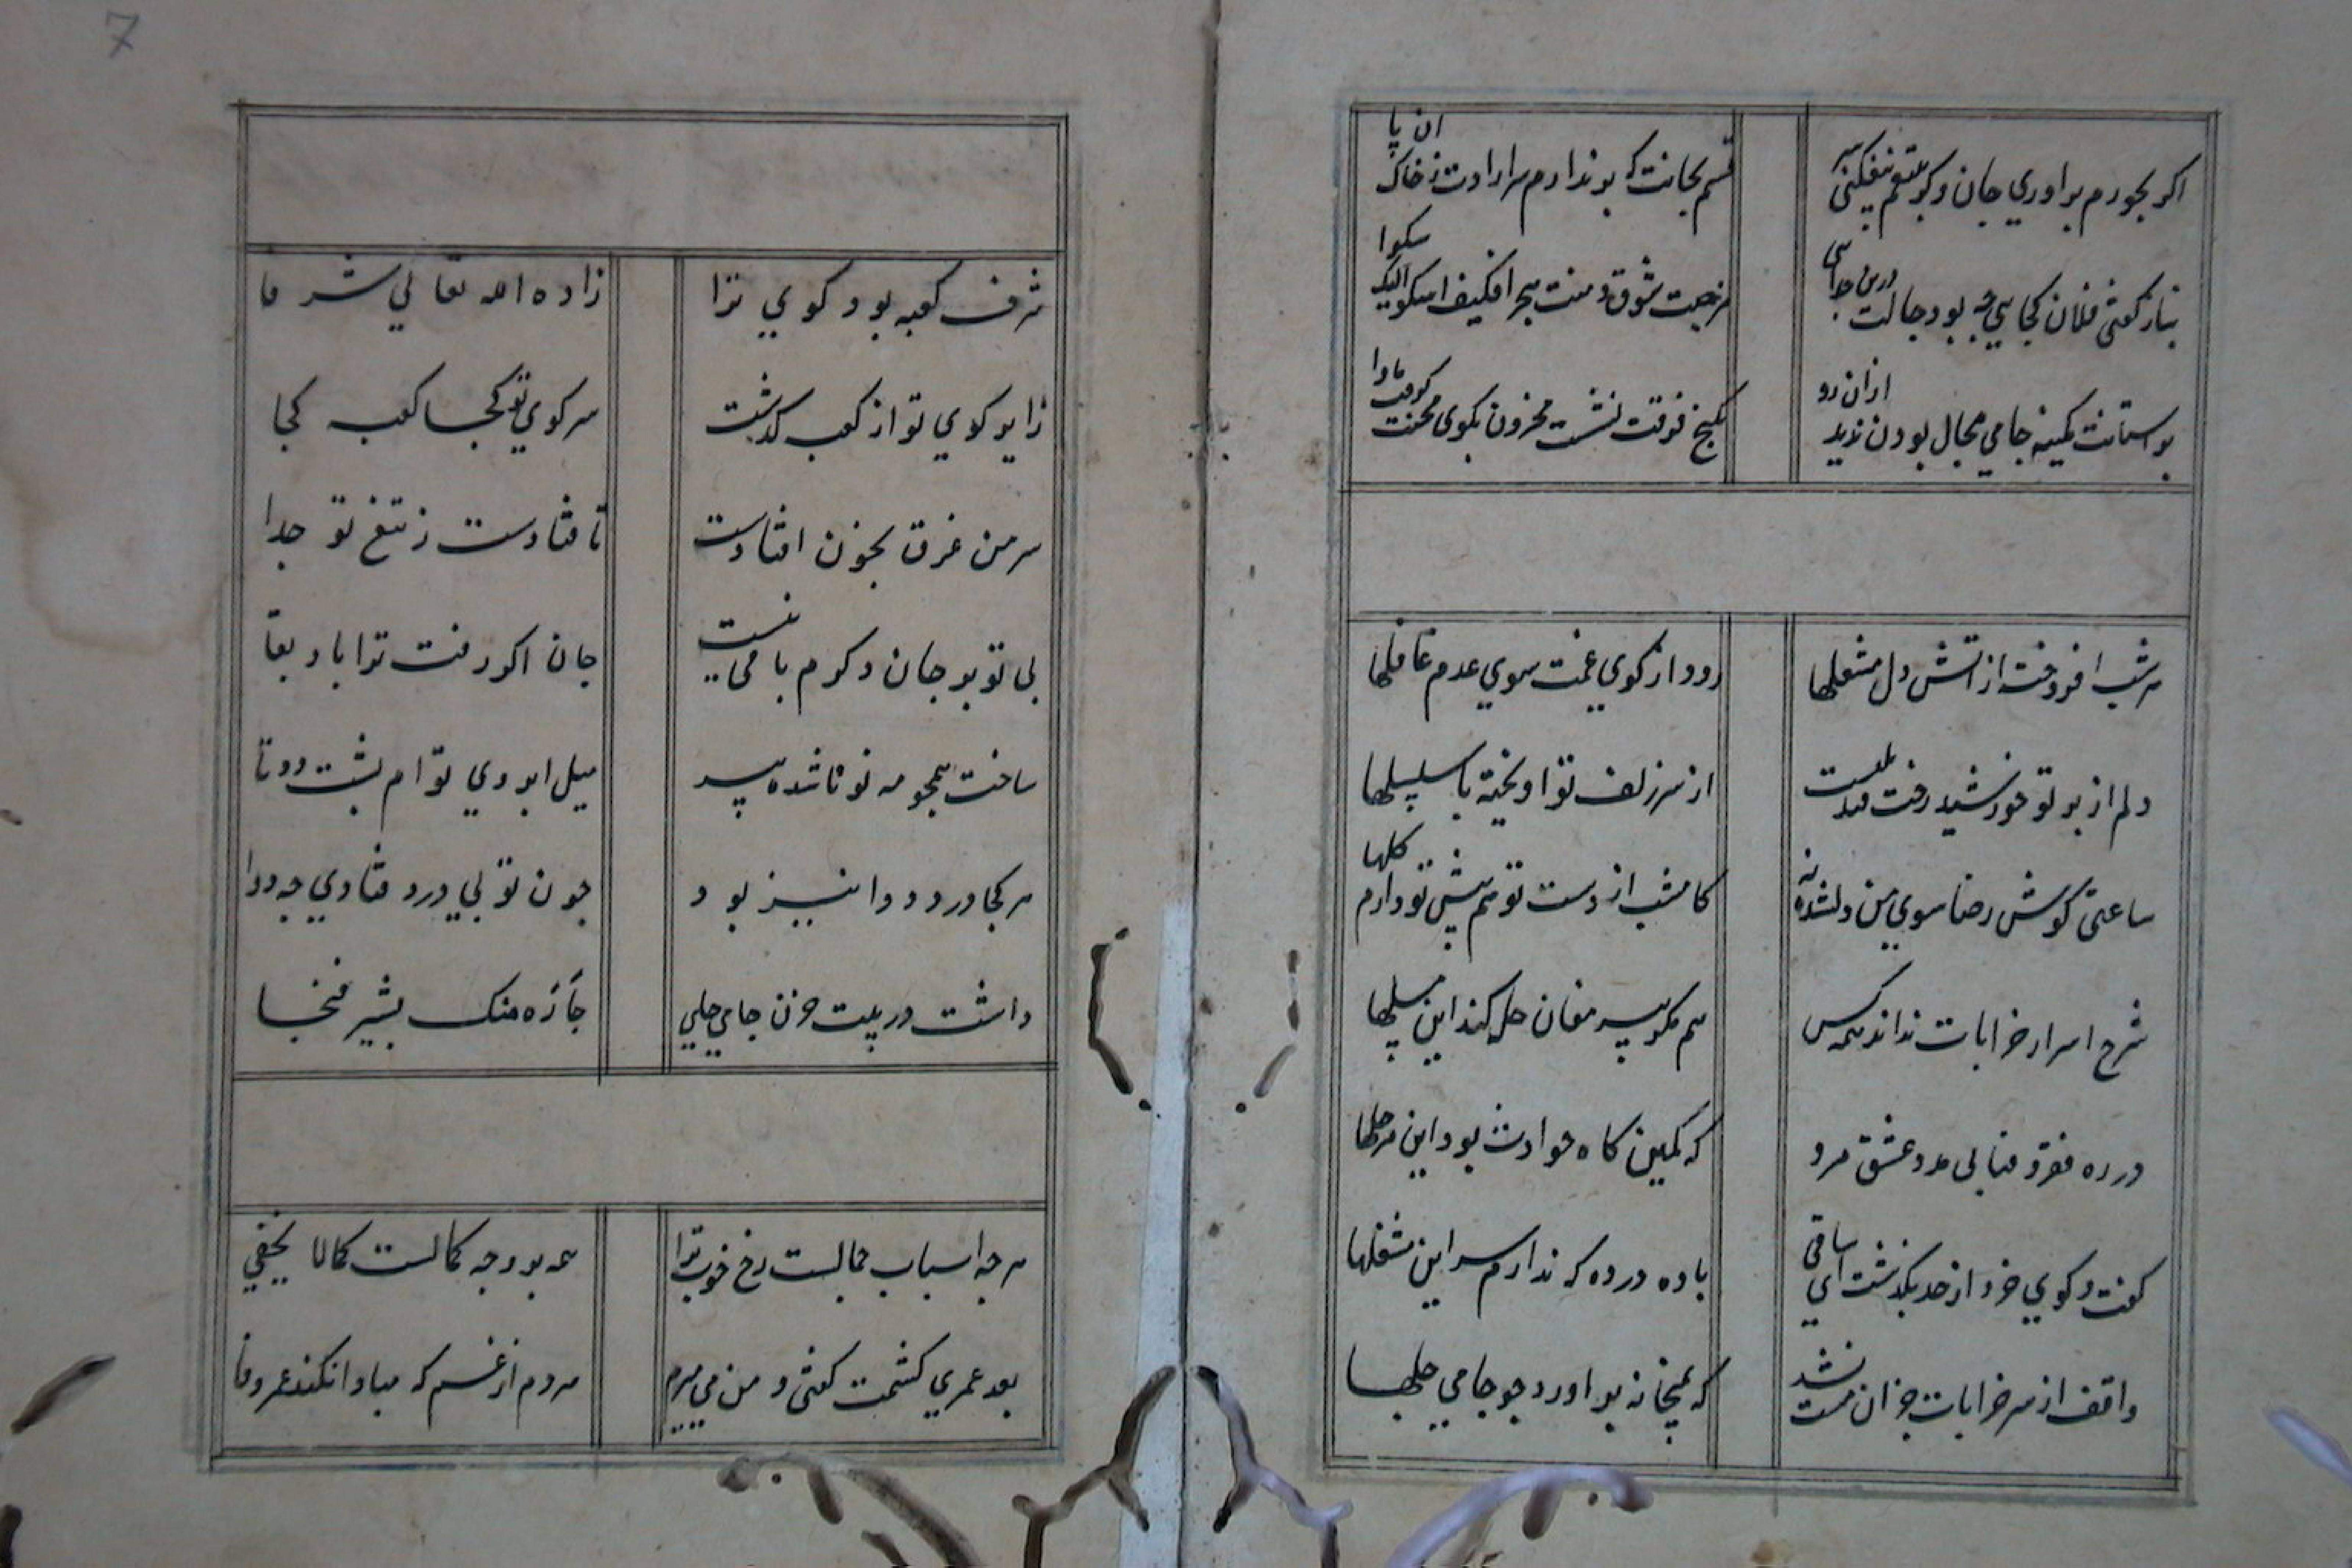 اکر بجورم براوري جان وکر بتیغم بیفکنی سر
قسم بجانت که برندارم سر ارادت ز خاک ان پا
بناز کفتی فلان کجایی چه بود حالت درین جدایی
مرضت شوقا ومت هجرا فکیف اشکو الیک شکوا
بر استانت کمینه جامي مجال بودن ندید ازان رو
بکنج فرقت نشست محزون بکوی محنت کرفت ماوا
هر شب افروخت از اتش دل مشعلها
رود از کوي غمت سوي عدم قافلها
دلم از پرتو خورشید رخت قندیلست
از سر زلف تو اویخته با سلسلها
ساعتی کوش رضا سوي من دلشده نه
کامشب از دست تو هم پیش تو دارم کلها
شرح اسرار خرابات نداند همه کس
هم مکر پیر مغان حل کند این مسلها
در ره فقر و فنا بی مدد عشق مرو
که کمین کاه حوادث بود این مرحلها
کفت و کوي خرد از حد بکذشت اي ساقی
باده در ده که ندارم سر این مشغلها
واقف از سر خرابات جز ان مست نشد
که بمیخانه براورد چو جامي چلها
7
شرف کعبه بود کوي ترا
زاده الله تعالي شرفا
زایر کوي تو از کعبه کذشت
سر کوي تو کجا کعبه کجا
سر من غرق بخون افتادست
تا فتادست ز تیغ تو جدا
بی تو بر جان دکرم باقی نیست
جان اکر رفت ترا باد بقا
ساخت همچو مه نو ناشده پیر
میل ابروي توام پشت دوتا
هر کجا درد دوا نیز بود
چون تو بي درد فتادي چه دوا
داشت در بیت حزن جامي جاي
جاءه منک بشیر فنجا
هر چه اسباب جمالست رخ خوب ترا
همه بر وجه کمالست کمالا یخفي
بعد عمري کشمت کفتی و من مي میرم
مردم از غم که مبادا نکند عمر وفا